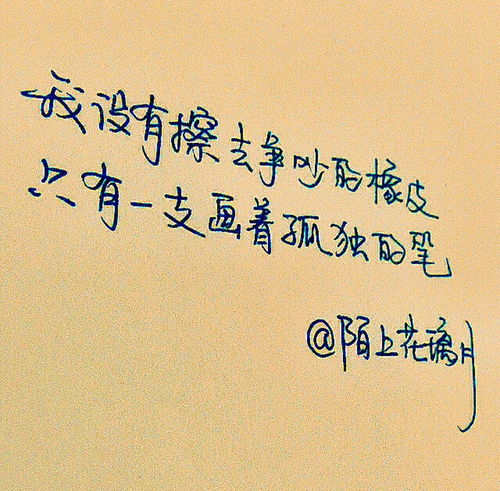 我没有擦去争吵的橡皮
只有一支画着孤独的笔
@陌上花璃月